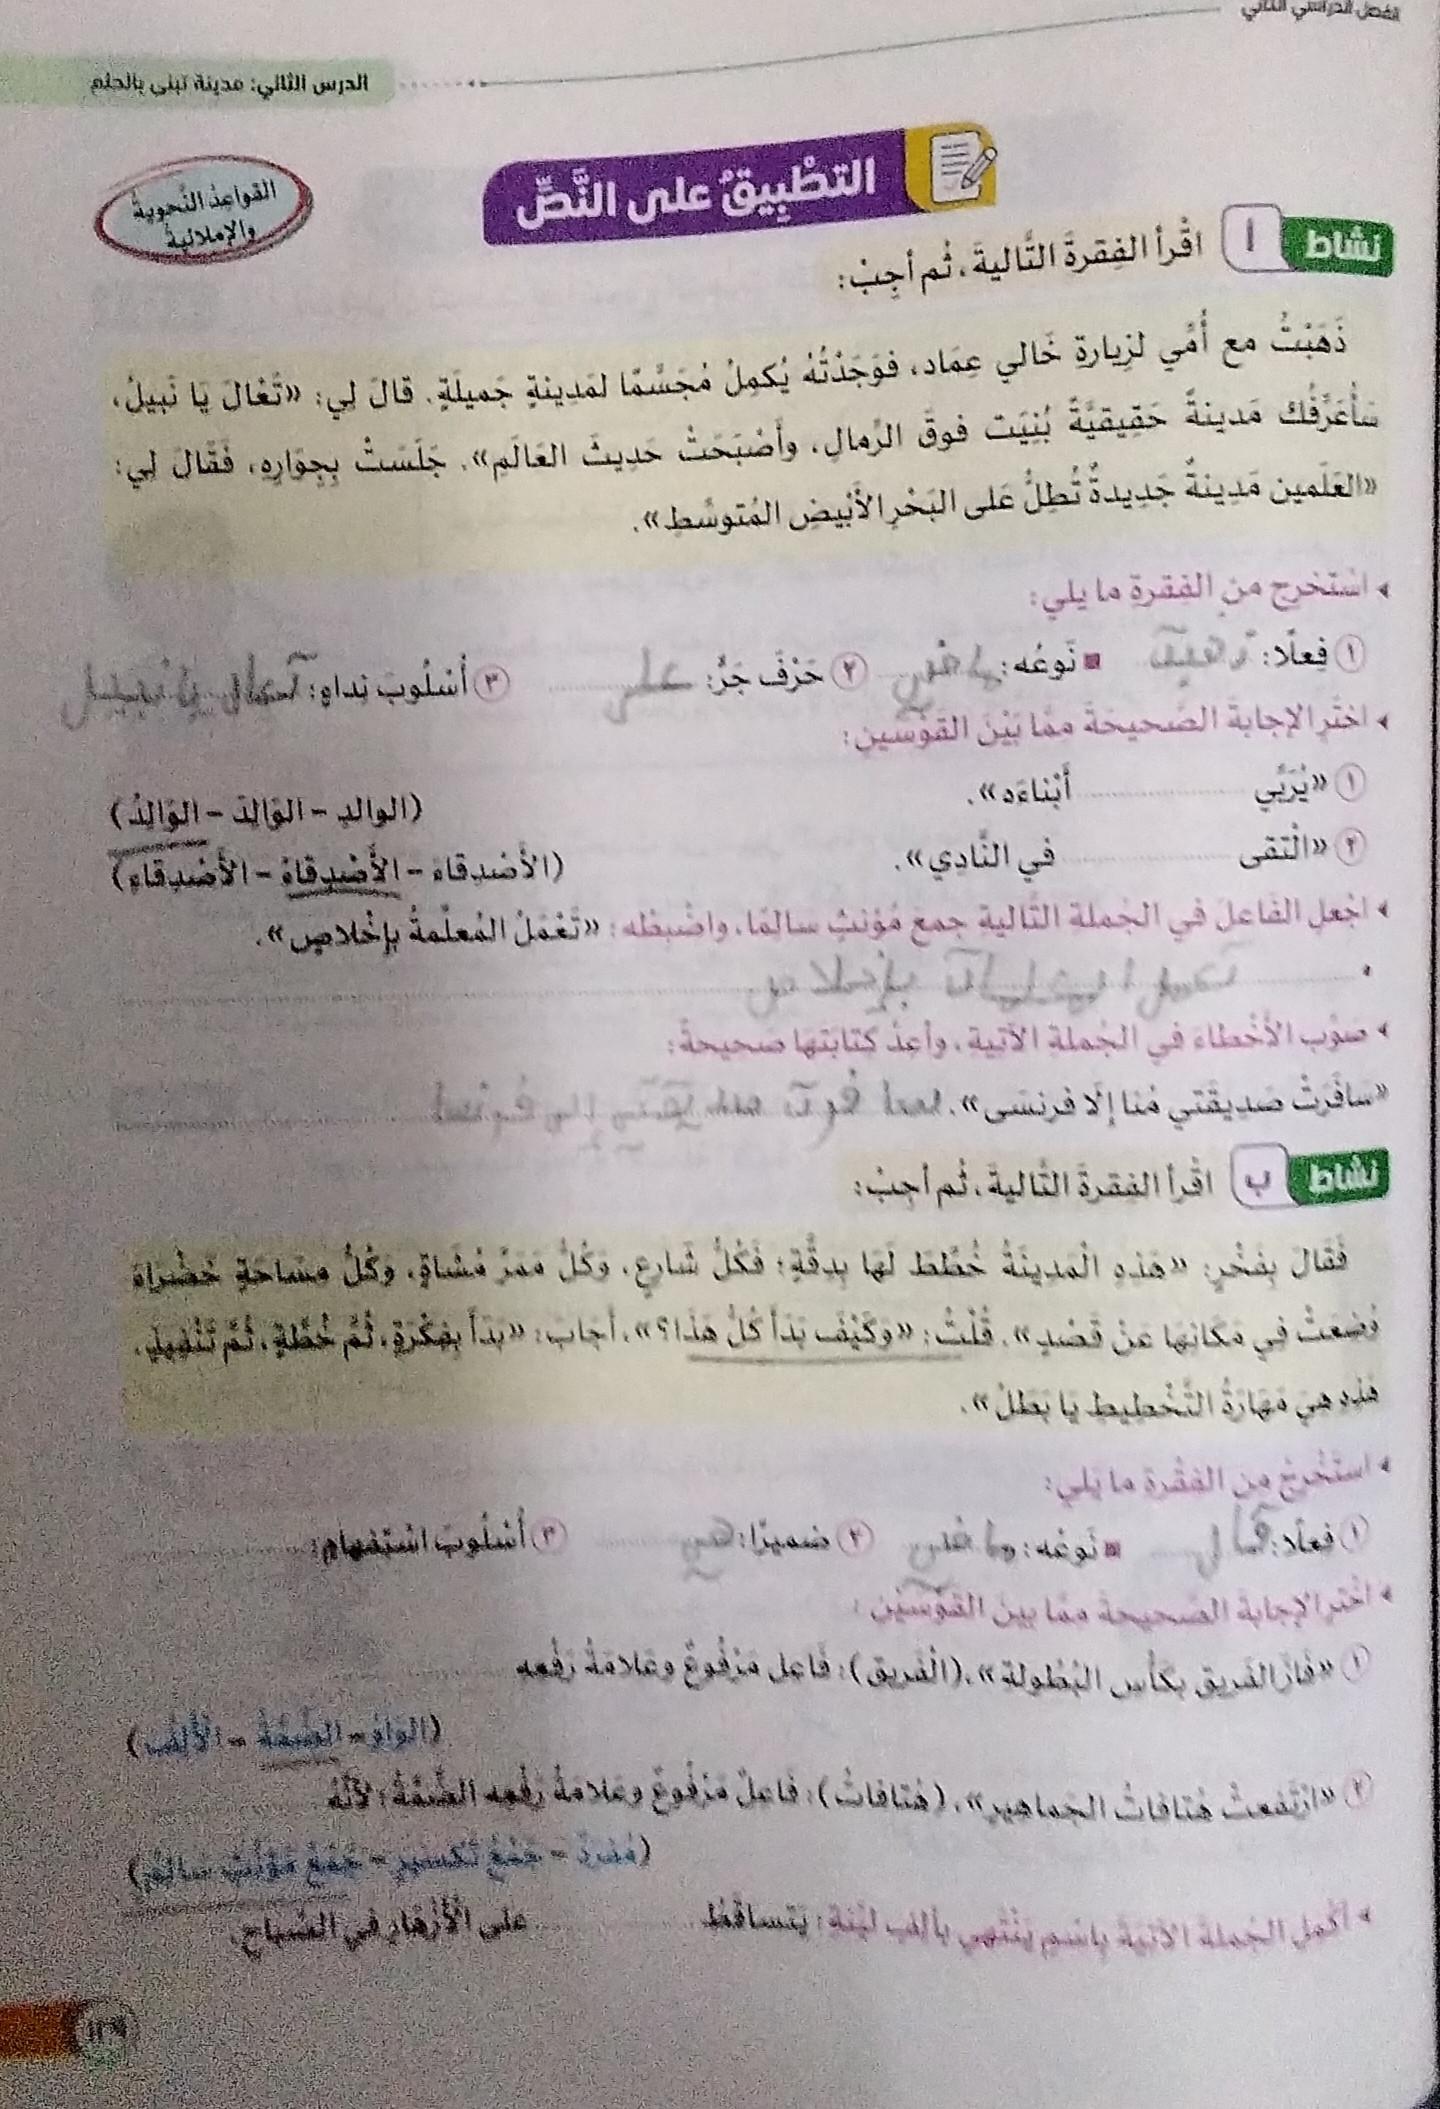 الفصل الدراسي الثاني
الدرس الثاني: مدينة تبنى بالحلم
التطْبِيقُ على النَّصِّ
القواعد النَّحوية والإملائية
نشاط أ اقْرأ الفِقرةَ التَّاليةَ، ثُم أجِبْ:
ذَهَبْتُ مع أُمِّي لزِيارةِ خَالي عِمَاد، فوَجَدْتُهُ يُكمِلُ مُجَسَّمًا لمَدِينةٍ جَميلَةٍ. قالَ لِي: «تَعَالَ يَا نَبيلُ،
سَأُعَرِّفُك مَدينةً حَقِيقيَّةً بُنِيَت فوقَ الرِّمالِ، وأَصْبَحَتْ حَديثَ العَالَمِ». جَلَسَتْ بِجِوَارِهِ، فَقَالَ لِي:
«العَلَمين مَدِينةٌ جَدِيدةٌ تُطِلُّ عَلى البَحْرِ الأَبْيضِ المُتوسِّطِ».
◂ اسْتخرِج من الفِقرةِ ما يلي:
١ فِعلًا: ذهبت ■ نَوعُه: ماضي ٢ حَرْفَ جَرٍّ: على ٣ أُسْلُوبَ نِداءٍ: تعال يا نبيل
◂ اختَرِ الإجابةَ الصَّحيحَةَ ممَّا بَيْنَ القَوْسَين:
١ «يُرَبِّي ........ أَبْناءَه». (الوالدِ – الوَالِدَ – الوَالِدُ)
٢ «الْتقى ........ في النَّادِي». (الأَصْدِقاءَ – الأَصْدِقاءُ – الأَصْدِقاءِ)
◂ اجْعلِ الفَاعلَ في الجُملة التَّالية جمعَ مُؤنثٍ سالمًا، واضْبطْه: «تَعْمَلُ المُعلِّمةُ بإخْلاصٍ».
تعمل المعلمات بإخلاص
◂ صَوِّب الأَخْطاءَ في الجُملةِ الآتية، وأعِدْ كتابَتَها صَحيحةً:
«سَافَرَتْ صَديقَتي مُنا إلَا فرنسَى». سافرت صديقتي إلى فرنسا
نشاط ب اقْرأ الفِقرةَ التَّاليةَ، ثُم أجِبْ:
فَقَالَ بِفَخْرٍ: «هَذهِ الْمَدينَةُ خُطِّطَ لَهَا بِدِقَّةٍ؛ فَكُلُّ شَارِعٍ، وَكُلُّ مَمَرِّ مُشَاةٍ، وَكُلُّ مِسَاحَةٍ خَضْرَاءَ
وُضِعَتْ في مَكَانِهَا عنْ قَصْدٍ». قُلْتُ: «وَكَيْفَ بَدَأَ كُلُّ هَذَا؟»، أجابَ: «بدَأَ بفِكْرَةٍ، ثُمَّ خُطَّةٍ، ثُمَّ تَنْفِيذٍ،
هَذِهِ هيَ مَهَارَةُ التَّخْطِيطِ يَا بَطَلُ».
◂ استَخْرِجْ من الفِقْرةِ ما يَلي:
١ فعلًا: قال ■ نَوعُه: ماضي ٢ ضميرًا: هي ٣ أُسْلُوبَ اسْتفهامٍ:
◂ اخْترِ الإجابةَ الصَّحيحةَ ممَّا بينَ القَوْسَيْنِ:
١ «فَازَ الفَريق بكَأْسِ البُطُولة». (الْفَريق): فَاعل مَرْفُوعٌ وعَلامَةُ رَفْعِه
(الوَاوُ – الضَّمَّةُ – الْأَلِفُ)
٢ «ارْتَفعتْ هُتافاتُ الجَماهيرِ». (هُتَافَاتُ): فَاعلٌ مَرْفُوعٌ وعَلامَةُ رَفْعِه الضَّمَّةُ؛ لأنَّهُ
(مُفردٌ – جَمْعُ تَكْسيرٍ – جَمْعُ مُؤنَّثٍ سَالِمٌ)
◂ أكْمل الجُملَةَ الآتيةَ باسْمٍ يَنْتَهي بألِفٍ ليِّنةٍ: يَتساقَطُ ........ على الْأَزْهارِ في الصَّباحِ.